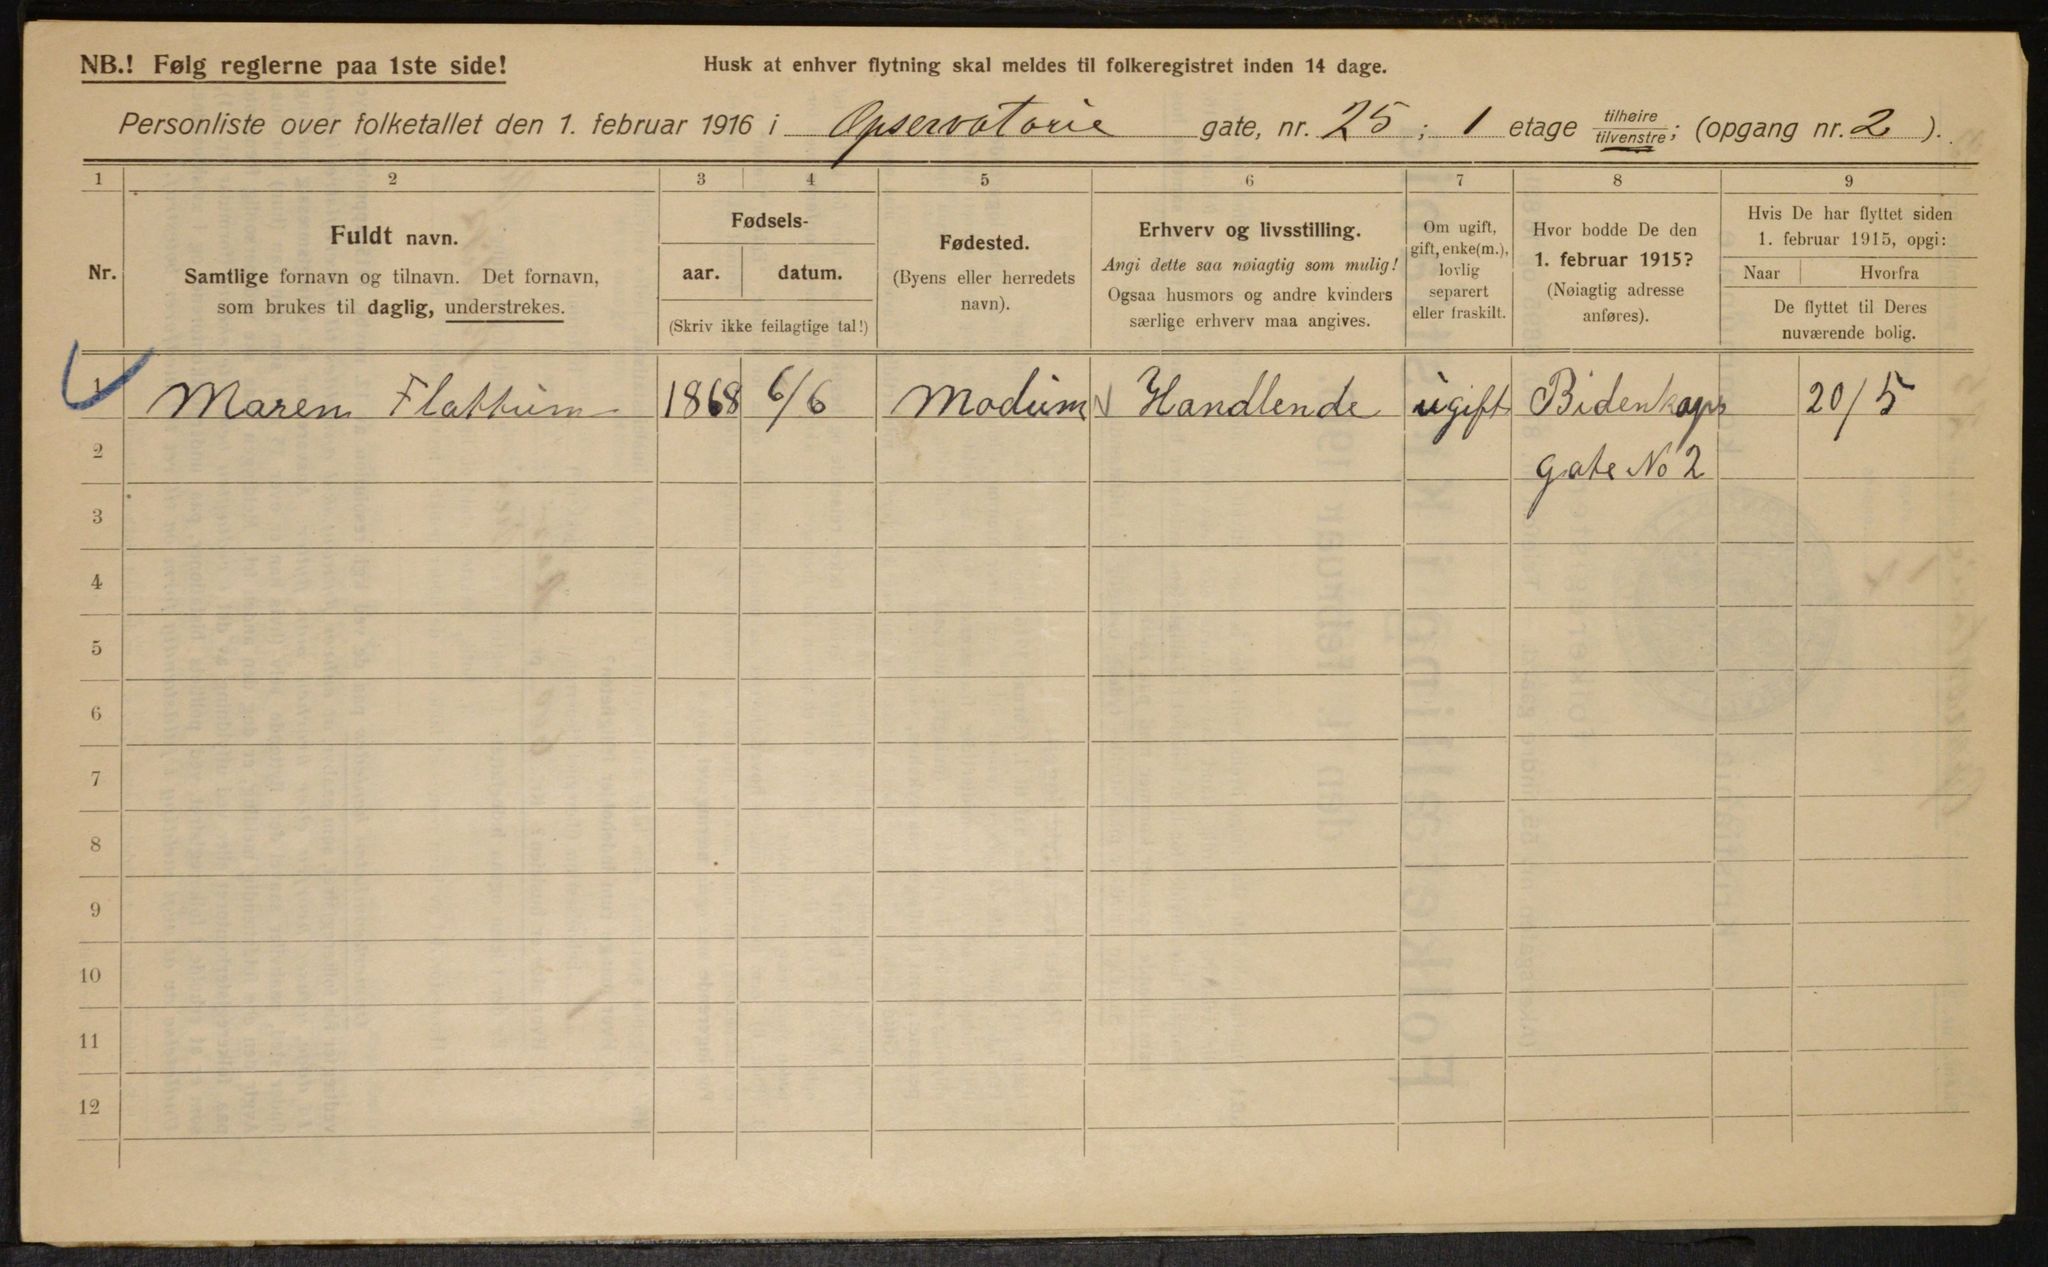 NB.! Følg reglerne paa 1ste side!
Husk at enhver flytning skal meldes til folkeregistret inden 14 dage.
Personliste over folketallet den 1. februar 1916 i Opservatorie gate, nr. 25 ; 1 etage tilhøire tilvenstre; (opgang nr. 2 ).
1 2 3 4 5 6 7 8 9
Nr.
Fuldt navn.
Samtlige fornavn og tilnavn. Det fornavn,
som brukes til daglig, understrekes.
Fødsels-
aar. datum.
(Skriv ikke feilagtige tal!)
Fødested.
(Byens eller herredets
navn).
Erhverv og livsstilling.
Angi dette saa nøiagtig som mulig!
Ogsaa husmors og andre kvinders
særlige erhverv maa angives.
Om ugift,
gift, enke(m.),
lovlig
separert
eller fraskilt.
Hvor bodde De den
1. februar 1915?
(Nøiagtig adresse
anføres).
Hvis De har flyttet siden
1. februar 1915, opgi:
Naar Hvorfra
De flyttet til Deres
nuværende bolig.
1 Maren Flattum 1868 6/6 Modum Handlende ugift Bidenkaps 20/5
2 gate No 2
3
4
5
6
7
8
9
10
11
12